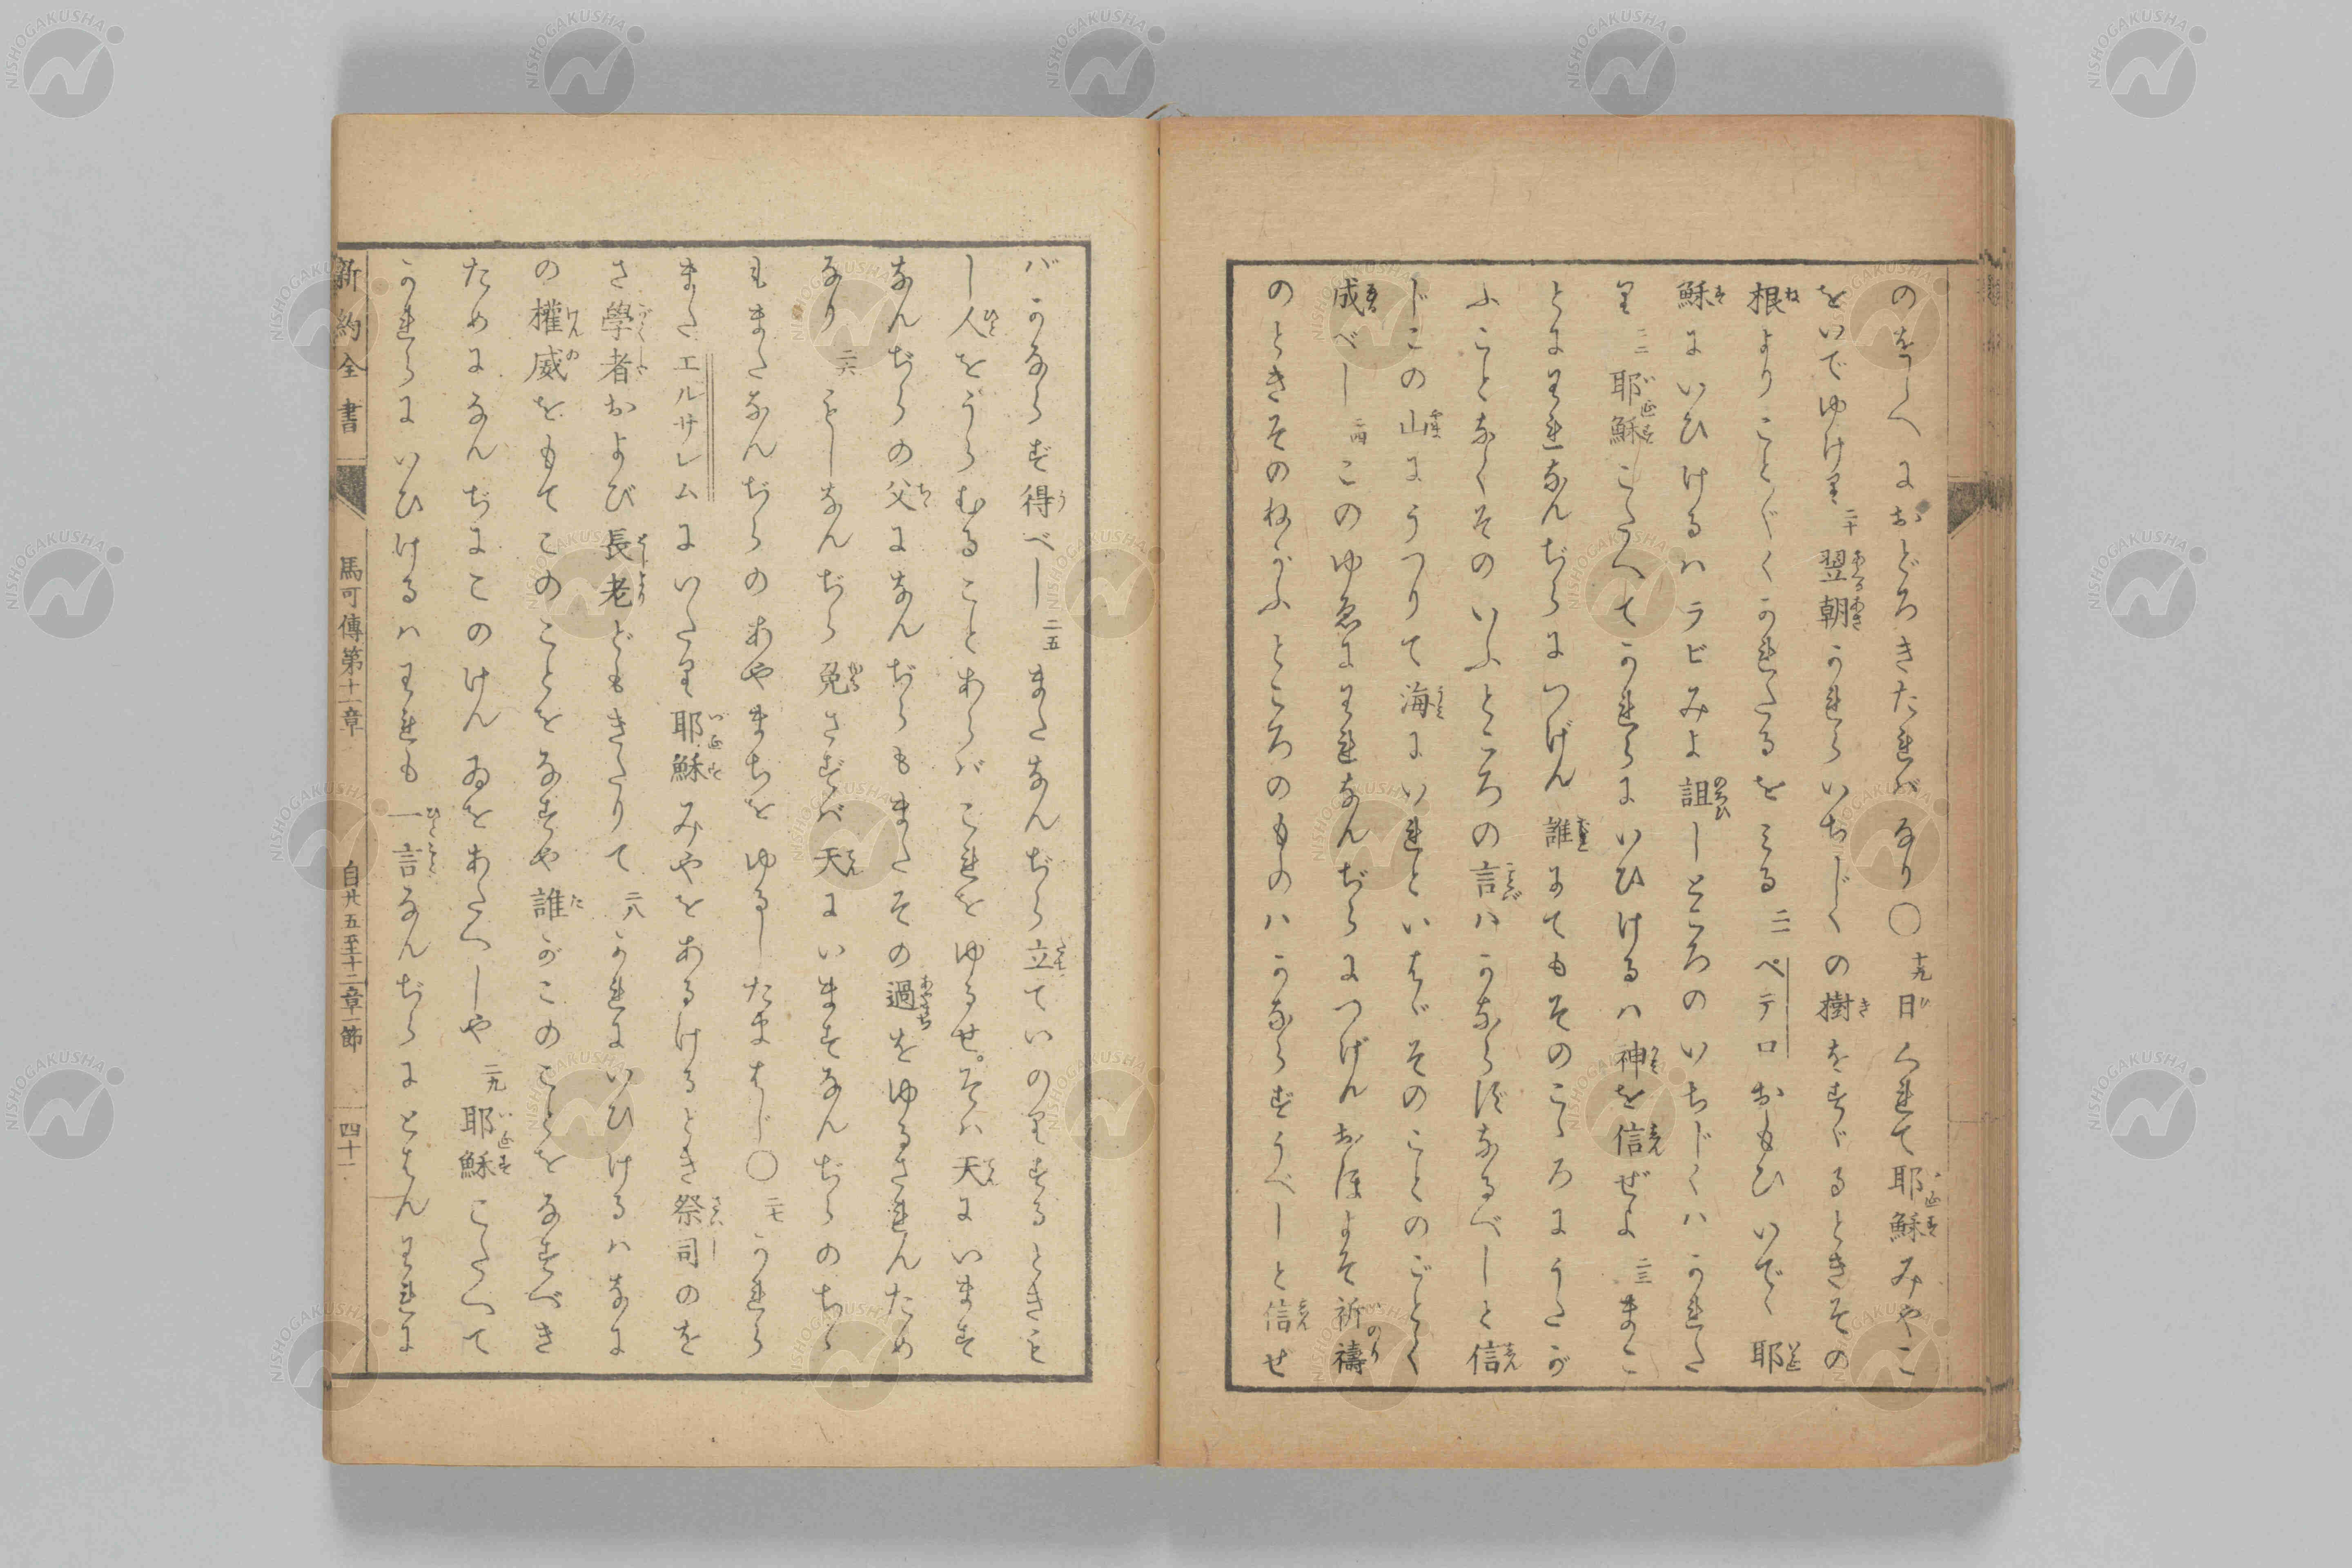 のをしへにおどろきたればなり○十九日くれて耶穌みやこ
をいでゆけり二十翌朝かれらいちじくの樹をすぐるときその
根よりこと〴〵くかれたるをみる二一ペテロおもひいでゝ耶
穌にいひけるハラビみよ詛しところのいちじくハかれた
り二二耶穌こたへてかれらにいひけるハ神を信ぜよ二三まこ
とにわれなんぢらにつげん誰にてもそのこゝろにうたが
ふことなくそのいふところの言ハかならずなるべしと信
じこの山にうつりて海にいれといはゞそのことのごとく
成べし二四このゆゑにわれなんぢらにつげんおほよそ祈禱
のときそのねがふところのものハかならずうべしと信せ
バかならず得べし二五またなんぢら立ていのりするときも
し人をうらむることあらバこれをゆるせ。そハ天にいます
なんぢらの父になんぢらもまたその過をゆるされんため
なり二六もしなんぢら免さずバ天にいますなんぢらのちゝ
もまたなんぢらのあやまちをゆるしたまはじ○二七かれら
またエルサレムにいたり耶穌みやをあるけるとき祭司のを
さ學者および長老どもきたりて二八かれにいひけるハなに
の權威をもてこのことをなすや誰がこのことをなすべき
ためになんぢにこのけんゐをあたへしや二九耶穌こたへて
かれらにいひけるハわれも一言なんぢらにとはんわれに
新約全書 馬可傳第十一章 自廿五至十二章一節 四十一